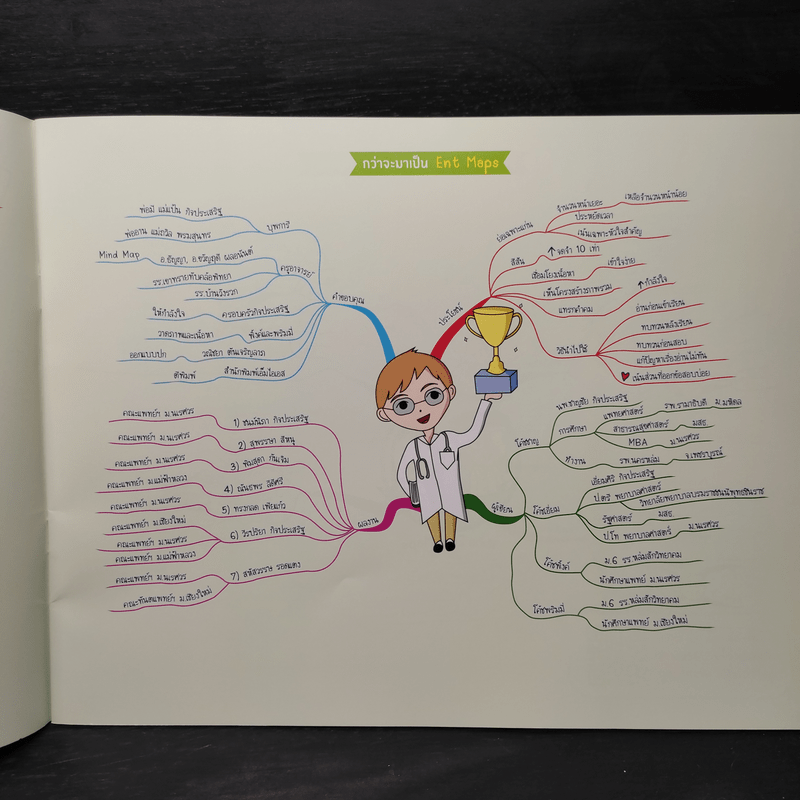 กว่าจะมาเป็น Ent Maps
คำขอบคุณ
บุพการี
พ่อมี แม่แป้น กิจประเสริฐ
พ่ออาน แม่ถวิล พรมสุนทร
ครูอาจารย์
Mind Map อ.ธัญญา, อ.ขวัญฤดี ผลอนันต์
รร.เขาทรายทับคล้อพิทยา
รร.บ้านวังรวก
ให้กำลังใจ ครอบครัวกิจประเสริฐ
วาดภาพและเนื้อหา พั้งค์และพริมมี่
ออกแบบปก วณิชยา ตันเจริญลาภ
ตีพิมพ์ สำนักพิมพ์เอ็มไอเอส
ประโยชน์
ย่อเฉพาะแก่น
จำนวนหน้าเยอะ เหลือจำนวนหน้าน้อย
ประหยัดเวลา
เน้นเฉพาะหัวใจสำคัญ
สีสัน ↑จดจำ 10 เท่า
เชื่อมโยงเนื้อหา เข้าใจง่าย
เห็นโครงสร้างภาพรวม
แทรกคำคม ↑กำลังใจ
วิธีนำไปใช้
อ่านก่อนเข้าเรียน
ทบทวนหลังเรียน
ทบทวนก่อนสอบ
แก้ปัญหาเรื่องอ่านไม่ทัน
เน้นส่วนที่ออกข้อสอบบ่อย
ผลงาน
คณะแพทย์ฯ ม.นเรศวร 1) ชนม์นิภา กิจประเสริฐ
คณะแพทย์ฯ ม.นเรศวร 2) สุพรรษา สีหนู
คณะแพทย์ฯ ม.นเรศวร 3) พิมสุดา กันเจิม
คณะแพทย์ฯ ม.แม่ฟ้าหลวง 4) ณันธพร ลีอัศรี
คณะแพทย์ฯ ม.นเรศวร 5) ทรงกลด เพียแก้ว
คณะแพทย์ฯ ม.เชียงใหม่
คณะแพทย์ฯ ม.นเรศวร 6) วิรปริยา กิจประเสริฐ
คณะแพทย์ฯ ม.แม่ฟ้าหลวง
คณะแพทย์ฯ ม.นเรศวร 7) สหัสวรรษ รอดแตง
คณะทันตแพทย์ฯ ม.เชียงใหม่
ผู้เขียน
โค้ชชาญ
นพ.ชาญชัย กิจประเสริฐ
การศึกษา
แพทยศาสตร์ รพ.รามาธิบดี ม.มหิดล
สาธารณสุขศาสตร์ มสธ.
MBA ม.นเรศวร
ทำงาน รพ.นครหล่ม จ.เพชรบูรณ์
โค้ชเอียม
เอี่ยมศิริ กิจประเสริฐ
ป.ตรี พยาบาลศาสตร์ วิทยาลัยพยาบาลบรมราชชนนีพุทธชินราช
รัฐศาสตร์ มสธ.
ป.โท พยาบาลศาสตร์ ม.นเรศวร
โค้ชพั้งค์
ม.6 รร.หล่มสักวิทยาคม
นักศึกษาแพทย์ ม.นเรศวร
โค้ชพริมมี่
ม.6 รร.หล่มสักวิทยาคม
นักศึกษาแพทย์ ม.เชียงใหม่